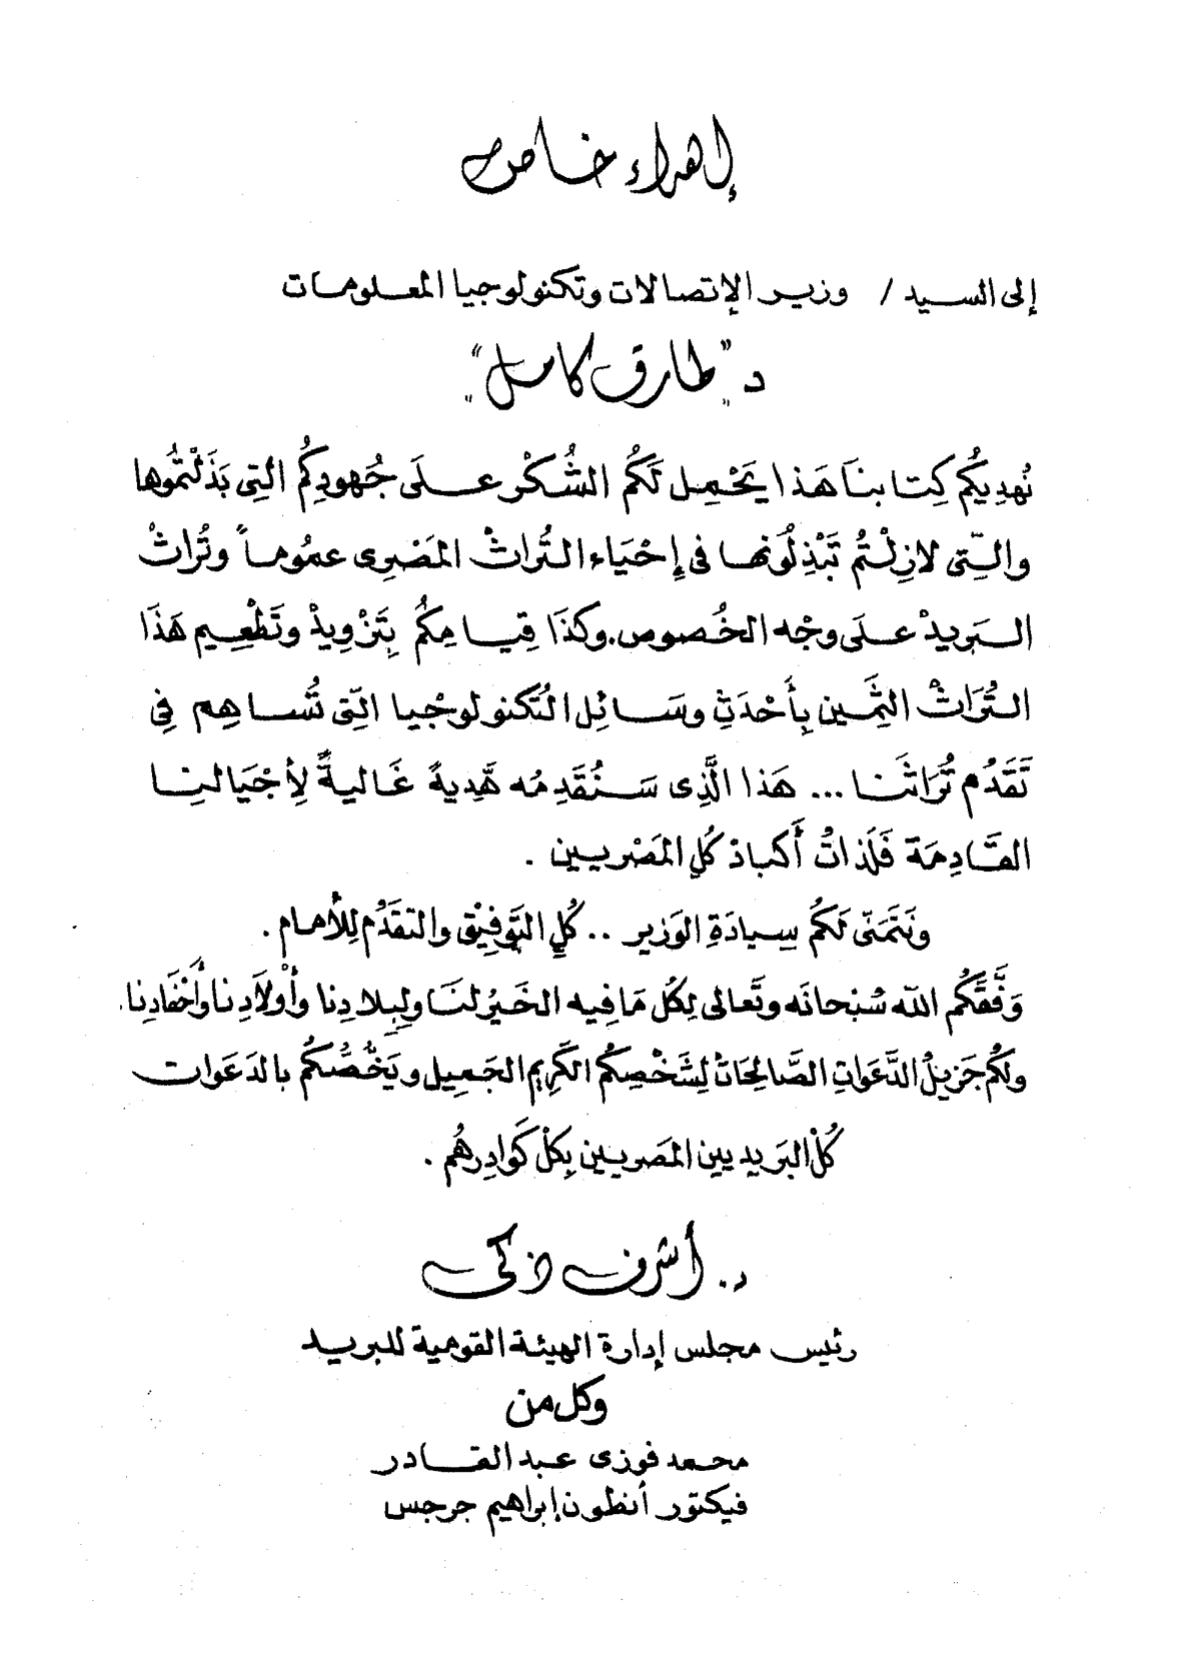 إهداء خاص
إلى السيد / وزير الإتصالات وتكنولوجيا المعلومات
د "طارق كامل"
نُهدِيكُم كِتابنَا هَذا يَحْمِل لَكُم الشُكْر علَى جُهودِكُم التِى بَذَلْتمُوها
والتِّى لازِلْتُم تَبْذِلُونها فى إحْيَاء التُراثْ المَصْرِى عمُوماً وتُراثْ
البَريدْ علَى وجْه الخُصوص. وكذَا قِيامِكُم بِتَزْوِيدْ وتَطْعِيم هَذَا
التُرَاثْ الثَمِين بِأَحْدَثِ وسَائِل التُكنولوجْيا التِّى تُساهِم فِى
تَقَدُم تُرَاثَنا ... هَذا الَّذِى سَنُقَدِمُه هَّدِيةً غَاليةً لِأجْيَالنِا
القَادِمَة فَلَذاتُ أَكبادْ كُلِ المَصْريين .
ونَتَمَنّى لَكُم سِيادَةِ الوَزير .. كُلِ التَوفِيْق والتقَدُم لِلأمام .
وَفَّقَكُم الله سُبْحانَه وتَعالى لِكُل مَا فِيه الخَيرُ لنَا ولِبِلادِنا وأوْلاَدِنا وأَحْفَادِنا.
ولكُم جَزيلُ الدَّعَواتِ الصَّالِحَاتْ لِشَخْصِكُم الكَرِيم الجَمِيل ويَخُصُّكُم بالدَعَوات
كُلْ البَريديين المَصريين بِكلْ كَوادِرهُم .
د. أشرف زكى
رئيس مجلس إدارة الهيئة القومية للبريد
وكل من
محمد فوزى عبد القادر
فيكتور أنطون إبراهيم جرجس